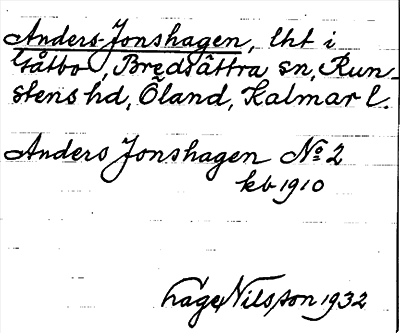 Anders-Jonshagen, lht i
Gåtbo, Bredsättra sn, Run-
stens hd, Öland, Kalmar l.
Anders Jonshagen No 2
kb 1910
Hage Nilsson 1932